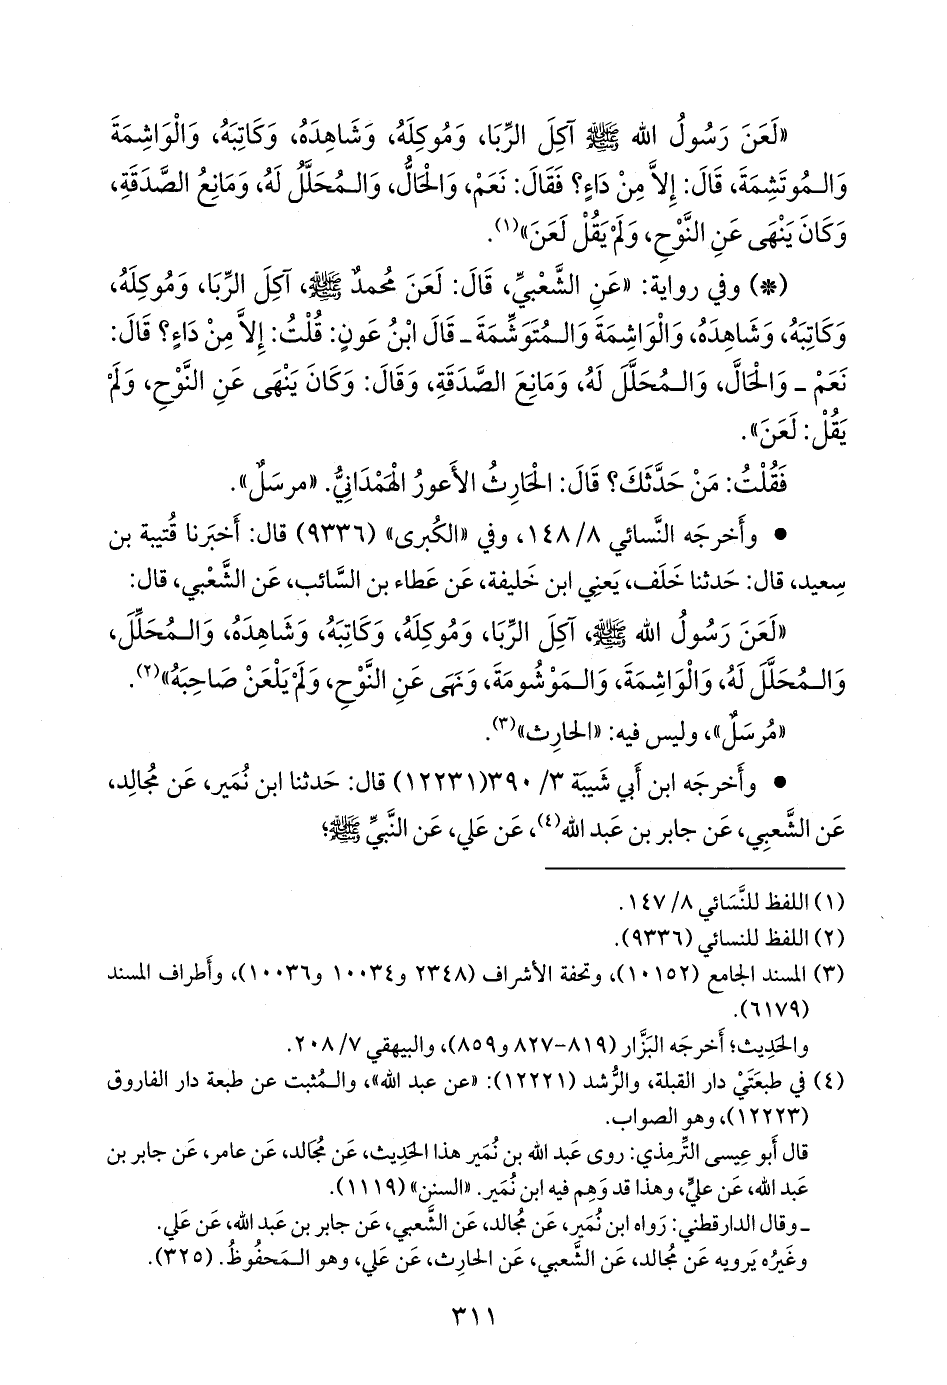 «لَعَنَ رَسُولُ الله ﷺ آكِلَ الرِّبَا، وَمُوكِلَهُ، وَشَاهِدَهُ، وَكَاتِبَهُ، وَالْوَاشِمَةَ
وَالـمُوتَشِمَةَ، قَالَ: إِلاَّ مِنْ دَاءٍ؟ فَقَالَ: نَعَمْ، وَالْحَالُّ، وَالـمُحَلَّلُ لَهُ، وَمَانِعُ الصَّدَقَةِ،
وَكَانَ يَنْهَى عَنِ النَّوْحِ، وَلَمْ يَقُلْ لَعَنَ»(١).
(*) وفي رواية: «عَنِ الشَّعْبِيِّ، قَالَ: لَعَنَ مُحمدٌ ﷺ، آكِلَ الرِّبَا، وَمُوكِلَهُ،
وَكَاتِبَهُ، وَشَاهِدَهُ، وَالْوَاشِمَةَ وَالـمُتَوَشِّمَةَ ـ قَالَ ابْنُ عَونٍ: قُلْتُ: إِلاَّ مِنْ دَاءٍ؟ قَالَ:
نَعَمْ ـ وَالْحَالَّ، وَالـمُحَلَّلَ لَهُ، وَمَانِعَ الصَّدَقَةِ، وَقَالَ: وَكَانَ يَنْهَى عَنِ النَّوْحِ، وَلَمْ
يَقُلْ: لَعَنَ».
فَقُلْتُ: مَنْ حَدَّثَكَ؟ قَالَ: الْحَارِثُ الأَعورُ الْهَمْدَانِيُّ. «مرسَلٌ».
• وأَخرجَه النَّسائي ٨/ ١٤٨، وفي «الكُبرى» (٩٣٣٦) قال: أَخبَرنا قُتيبة بن
سعِيد، قال: حَدثنا خَلَف، يَعنِي ابن خَليفة، عَن عَطاء بن السَّائب، عَن الشَّعْبي، قال:
«لَعَنَ رَسُولُ الله ﷺ، آكِلَ الرِّبَا، وَمُوكِلَهُ، وَكَاتِبَهُ، وَشَاهِدَهُ، وَالـمُحَلِّلَ،
وَالـمُحَلَّلَ لَهُ، وَالْوَاشِمَةَ، وَالـمَوْشُومَةَ، وَنَهَى عَنِ النَّوْحِ، وَلَمْ يَلْعَنْ صَاحِبَهُ»(٢).
«مُرسَلٌ»، وليس فيه: «الحارِث»(٣).
• وأَخرجَه ابن أَبي شَيبَة ٣/ ٣٩٠(١٢٢٣١) قال: حَدثنا ابن نُمَير، عَن مُجالِد،
عَن الشَّعبِي، عَن جابر بن عَبد الله(٤)، عَن علي، عَن النَّبيِّ ﷺ؛
(١) اللفظ للنَّسَائي ٨/ ١٤٧.
(٢) اللفظ للنسائي (٩٣٣٦).
(٣) المسند الجامع (١٠١٥٢)، وتحفة الأشراف (٢٣٤٨ و١٠٠٣٤ و١٠٠٣٦)، وأَطراف المسند
(٦١٧٩).
والحَدِيث؛ أَخرجَه البَزَّار (٨١٩-٨٢٧ و٨٥٩)، والبيهقي ٧/ ٢٠٨.
(٤) في طبعَتَيْ دار القبلة، والرُّشد (١٢٢٢١): «عن عبد الله»، والـمُثبت عن طبعة دار الفاروق
(١٢٢٢٣)، وهو الصواب.
قال أَبو عِيسى التِّرمِذي: روى عَبد الله بن نُمَير هذا الحَدِيث، عَن مُجَالد، عَن عامر، عَن جابر بن
عَبد الله، عَن عليٍّ، وهذا قد وَهِم فيه ابن نُمَير. «السنن» (١١١٩).
ـ وقال الدارقطني: رَواه ابن نُمَير، عَن مُجالد، عَن الشَّعبي، عَن جابر بن عَبد الله، عَن علي.
وغَيرُه يَرويه عَن مُجالد، عَن الشَّعبي، عَن الحارِث، عَن علي، وهو الـمَحفُوظُ. (٣٢٥).
٣١١